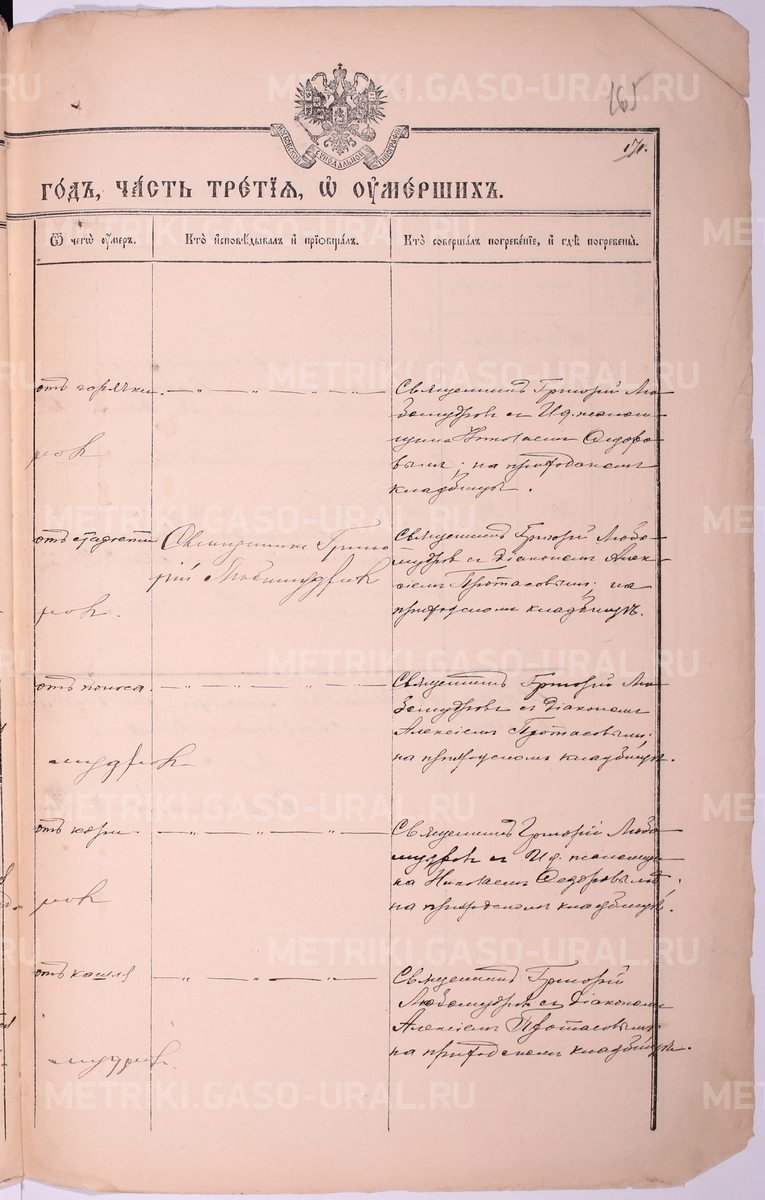 265
МОСКОВСКОЙ СѴНОДАЛЬНОЙ ТИПОГРАФІИ
171.
го́дъ, ча́сть тре́тїѧ, ѡ҆ ᲂу҆ме́ршихъ.
Ѿ чегѡ̀ ᲂу҆́меръ.
Кто̀ и҆сповѣ́дывалъ и҆ прїѡбща́лъ.
Кто̀ соверша́лъ погребе́нїе, и҆ гдѣ̀ погребены̀.
отъ горячки.
Священникъ Григорій Лю-
бомудровъ съ И. д. псалом-
щика Николаемъ Федоро-
вымъ; на приходскомъ
кладбищѣ.
отъ старости
Священникъ Григо-
рій Любомудровъ
Священникъ Григорій Любо-
мудровъ съ Діакономъ Алек-
сіемъ Протасовымъ; на
приходскомъ кладбищѣ.
отъ поноса.
Священникъ Григорій Лю-
бомудровъ съ Діакономъ
Алексіемъ Протасовымъ.
на приходскомъ кладбищѣ.
мудров
отъ кори
Священникъ Григорій Любо-
мудровъ съ И. д. псаломщи-
ка Николаемъ Федоровымъ.
на приходскомъ кладбищѣ.
отъ кашля
Священникъ Григорій
Любомудровъ съ Діакономъ
Алексіемъ Протасовымъ.
на приходскомъ кладбищѣ.
мудров.
METRIKI.GASO-URAL.RU